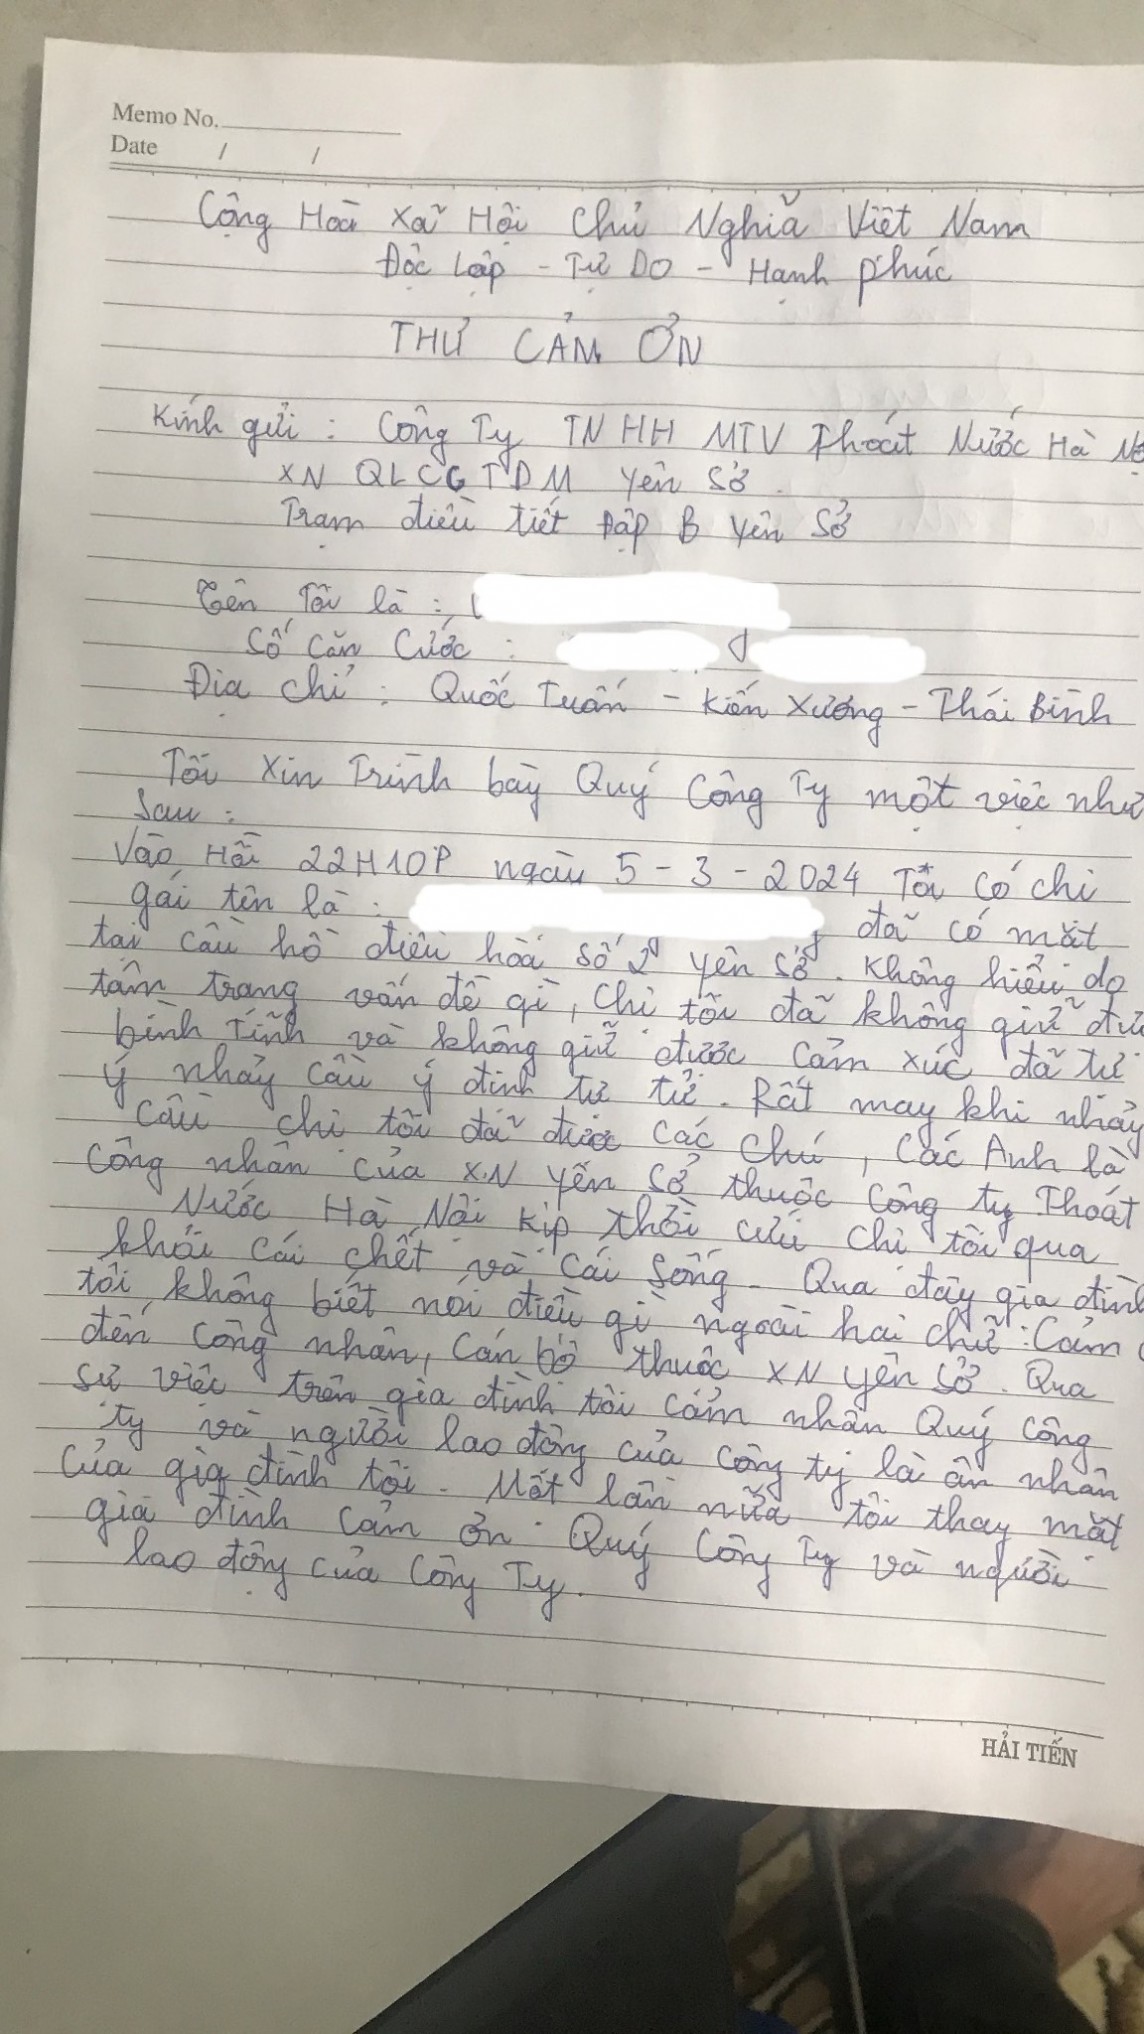 Memo No.
Date / /
Cộng Hoà Xã Hội Chủ Nghĩa Việt Nam
Độc Lập - Tự Do - Hạnh phúc
THƯ CẢM ƠN
Kính gửi : Công Ty TNHH MTV Thoát Nước Hà Nộ
XN QLCGTDM Yên Sở .
Trạm điều tiết Đập B Yên Sở
Tên Tôi là :
Số Căn Cước :
Địa chỉ : Quốc Tuấn - Kiến Xương - Thái Bình
Tôi Xin Trình bày Quý Công Ty một việc như
sau :
Vào Hồi 22H10P ngày 5 - 3 - 2024 Tôi có chị
gái tên là : đã có mặt
tại cầu hồ điều hoà số 2 Yên Sở . Không hiểu do
tâm trạng vấn đề gì , chị tôi đã không giữ đượ
bình tĩnh và không giữ được cảm xúc đã tự
ý nhảy cầu ý định tự tử . Rất may khi nhảy
cầu chị tôi đã được các chú , các Anh là
công nhân của X.N Yên Sở thuộc công ty Thoát
Nước Hà Nội kịp thời cứu chị tôi qua
khỏi cái chết và cái sống - Qua đây gia đình
tôi không biết nói điều gì ngoài hai chữ : Cảm
đến công nhân, cán bộ thuộc XN Yên Sở . Qua
sự việc trên gia đình tôi cảm nhận Quý công
ty và người lao động của công ty là ân nhân
của gia đình tôi . Một lần nữa tôi thay mặt
gia đình cảm ơn Quý Công Ty và người
lao động của Công Ty .
HẢI TIẾN